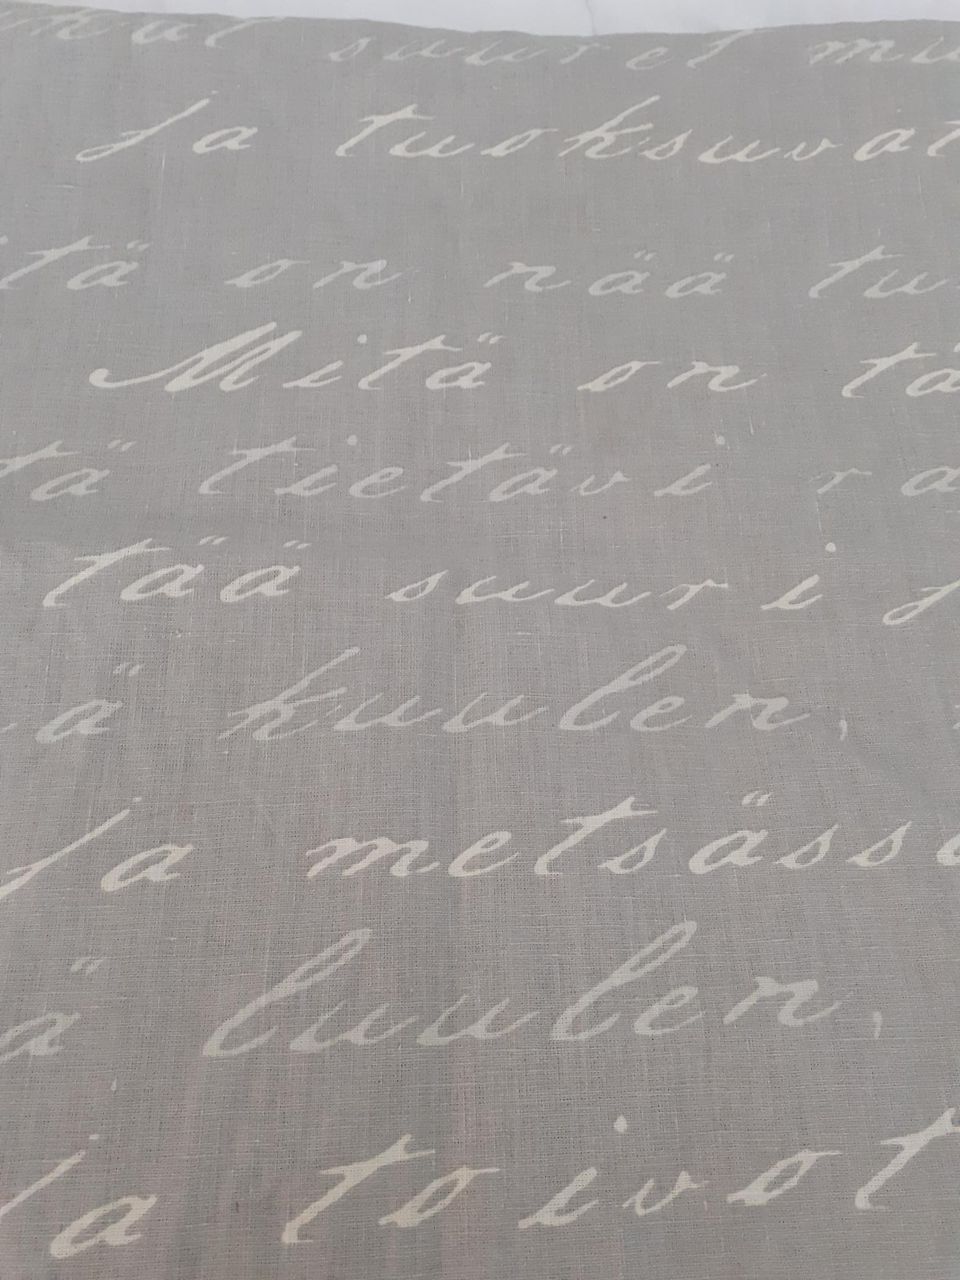 suuret mu
Ja tuoksuvat
tä on nää tu
Mitä on tä
tä tietävi ra
tää suuri j
ä kuulen,
Ja metsässä
ä luulen,
Ja toivot